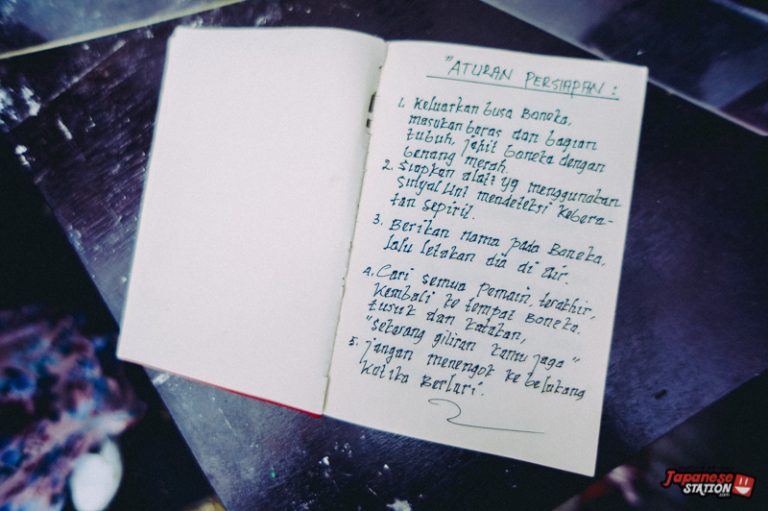 "ATURAN PERSIAPAN :
1. Keluarkan busa Boneka,
masukan beras dan bagian
tubuh, jahit boneka dengan
benang merah.
2. Siapkan alat yg menggunakan
Sinyal Uni mendeteksi Kebera-
tan Sepirit.
3. Berikan nama pada Boneka,
lalu letakan dia di Air.
4. Cari Semua Pemain, terakhir,
Kembali ke tempat Boneka.
tusuk dan katakan,
"Sekarang giliran kamu jaga"
5. jangan menengok ke belakang
Ketika Berlari.
Japanese
STATION
.com